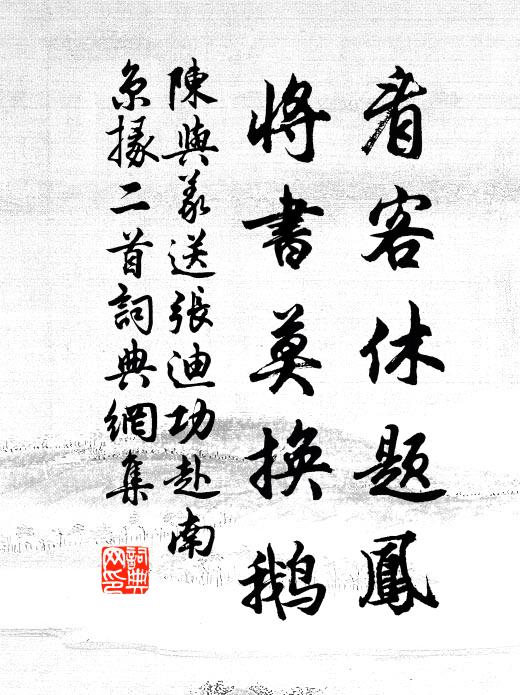 看客休題鳳
將書莫換鵝
陳與義送張迪功赴南
京掾二首詞典網集
詞典
网印